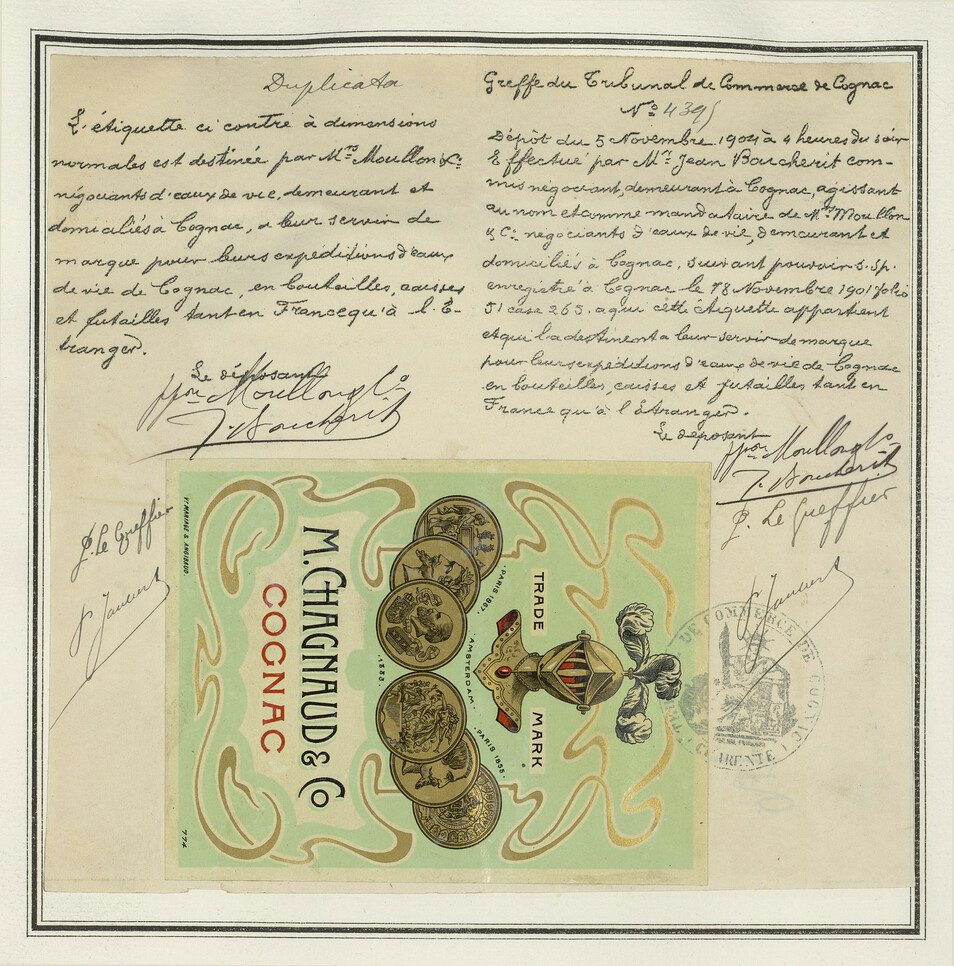 Duplicata
L'étiquette ci contre à dimensions
normales est destinée par Mrs Moullon & Cie
négociants d'eaux de vie, demeurant et
domiciliés à Cognac, a leur servir de
marque pour leurs expéditions d'eaux
de vie de Cognac, en bouteilles, caisses
et futailles tant en France qu'à l'É-
tranger.
Le déposant
ppon Moullon & Co
J. Boucherit
P. Le Greffier
Greffe du Tribunal de Commerce de Cognac
No 4395
Dépôt du 5 Novembre 1904 à 4 heures du soir
Effectué par Mr Jean Boucherit com-
mis négociant, demeurant à Cognac, agissant
au nom et comme mandataire de Mrs Moullon
& Cie négociants d'eaux de vie, demeurant et
domiciliés à Cognac, suivant pouvoir s.sp.
enregistré à Cognac le 18 Novembre 1901 folio
51 case 265, a qui cette étiquette appartient
et qui la destinent a leur servir de marque
pour leurs expéditions d'eaux de vie de Cognac
en bouteilles, caisses et futailles tant en
France qu'à l'étranger.
Le déposant
ppon Moullon & Co
J. Boucherit
P. Le Greffier
Vve MARIAGE & ANGIBAUD.
M. CHAGNAUD & Co
COGNAC
PARIS 1867.
AMSTERDAM.
1883.
PARIS 1855.
TRADE MARK
774
DE COMMERCE DE COGNAC
CHARENTE